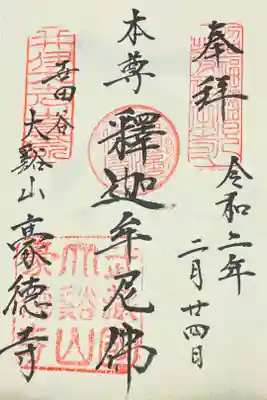 奉拝
令和二年
二月廿四日
本尊
釋迦牟尼佛
世田谷
大谿山
豪德寺